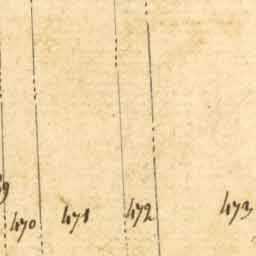 470 471 472 473